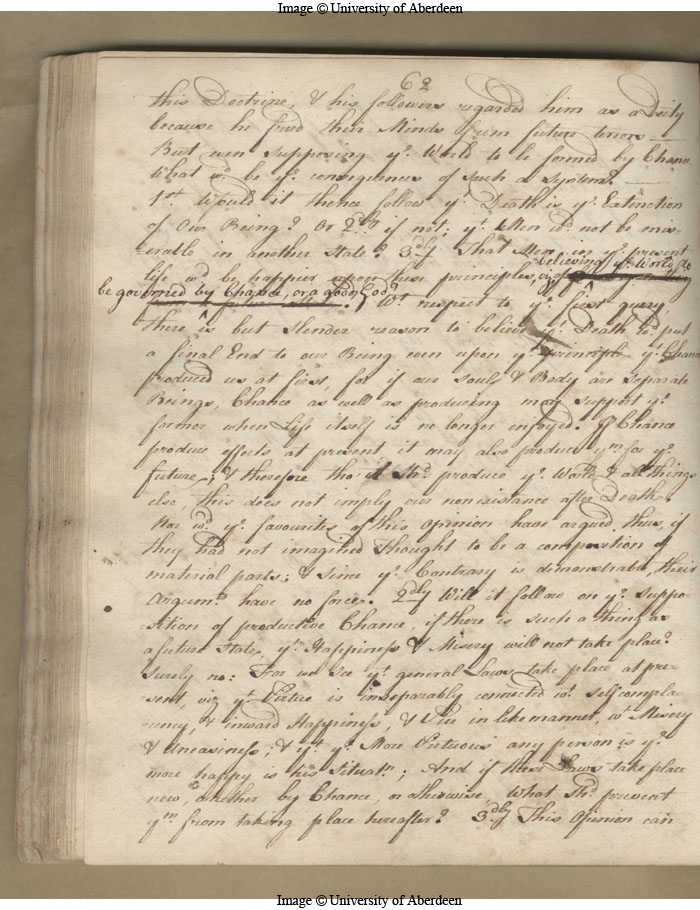 Image © University of Aberdeen
62
this Doctrine, & his followers regarded him as a Deity
because he freed their Minds from future terrors
But even supposing ye. World to be formed by Chance
What wd. be ye. consequences of such a system?
1st. Would it thence follow yt. Death is ye. Extinction
of Our Being? Or 2dly if not, yt. Men wd. not be mis-
erable in another State? 3dly That Men in ye. present
believing ye. World to
life wd. be happier upon these principles, viz of
be governed by Chance, or a good God?
Wt. respect to ye. first query
there is but slender reason to believe yt. Death wd. put
a final End to our Being even upon ye. principle yt. Chance
produced us at first, for if our Soul & Body are separate
Beings, Chance as well as producing may support ye.
former when Life itself is no longer enjoyed. If Chance
produce effects at present it may also produce ym. for ye.
future; & therefore tho' it Shd. produce ye. World & all things
else this does not imply our nonexistance after Death.
Nor wd. ye. favourites of this opinion have argued thus, if
they had not imagined Thought to be a composition of
material parts; & since ye. Contrary is demonstrable, their
Argumts. have no force. 2dly Will it follow on ye. suppo-
-sition of productive Chance, if there is such a thing as
a future State, yt. Happiness & Misery will not take place?
Surely no: For we see yt. general Laws take place at pre-
-sent, viz yt. Virtue is inseparably connected wt. selfcompla-
-cency, & inward Happiness, & Vice in like manner, wt. Misery
& Uneasiness; & yt. ye. More Virtuous any person is ye.
more happy is his Situatn.; And if these Laws take place
now, whether by Chance, or otherwise, What Shd. prevent
ym. from taking place hereafter? 3dly This Opinion can
Image © University of Aberdeen